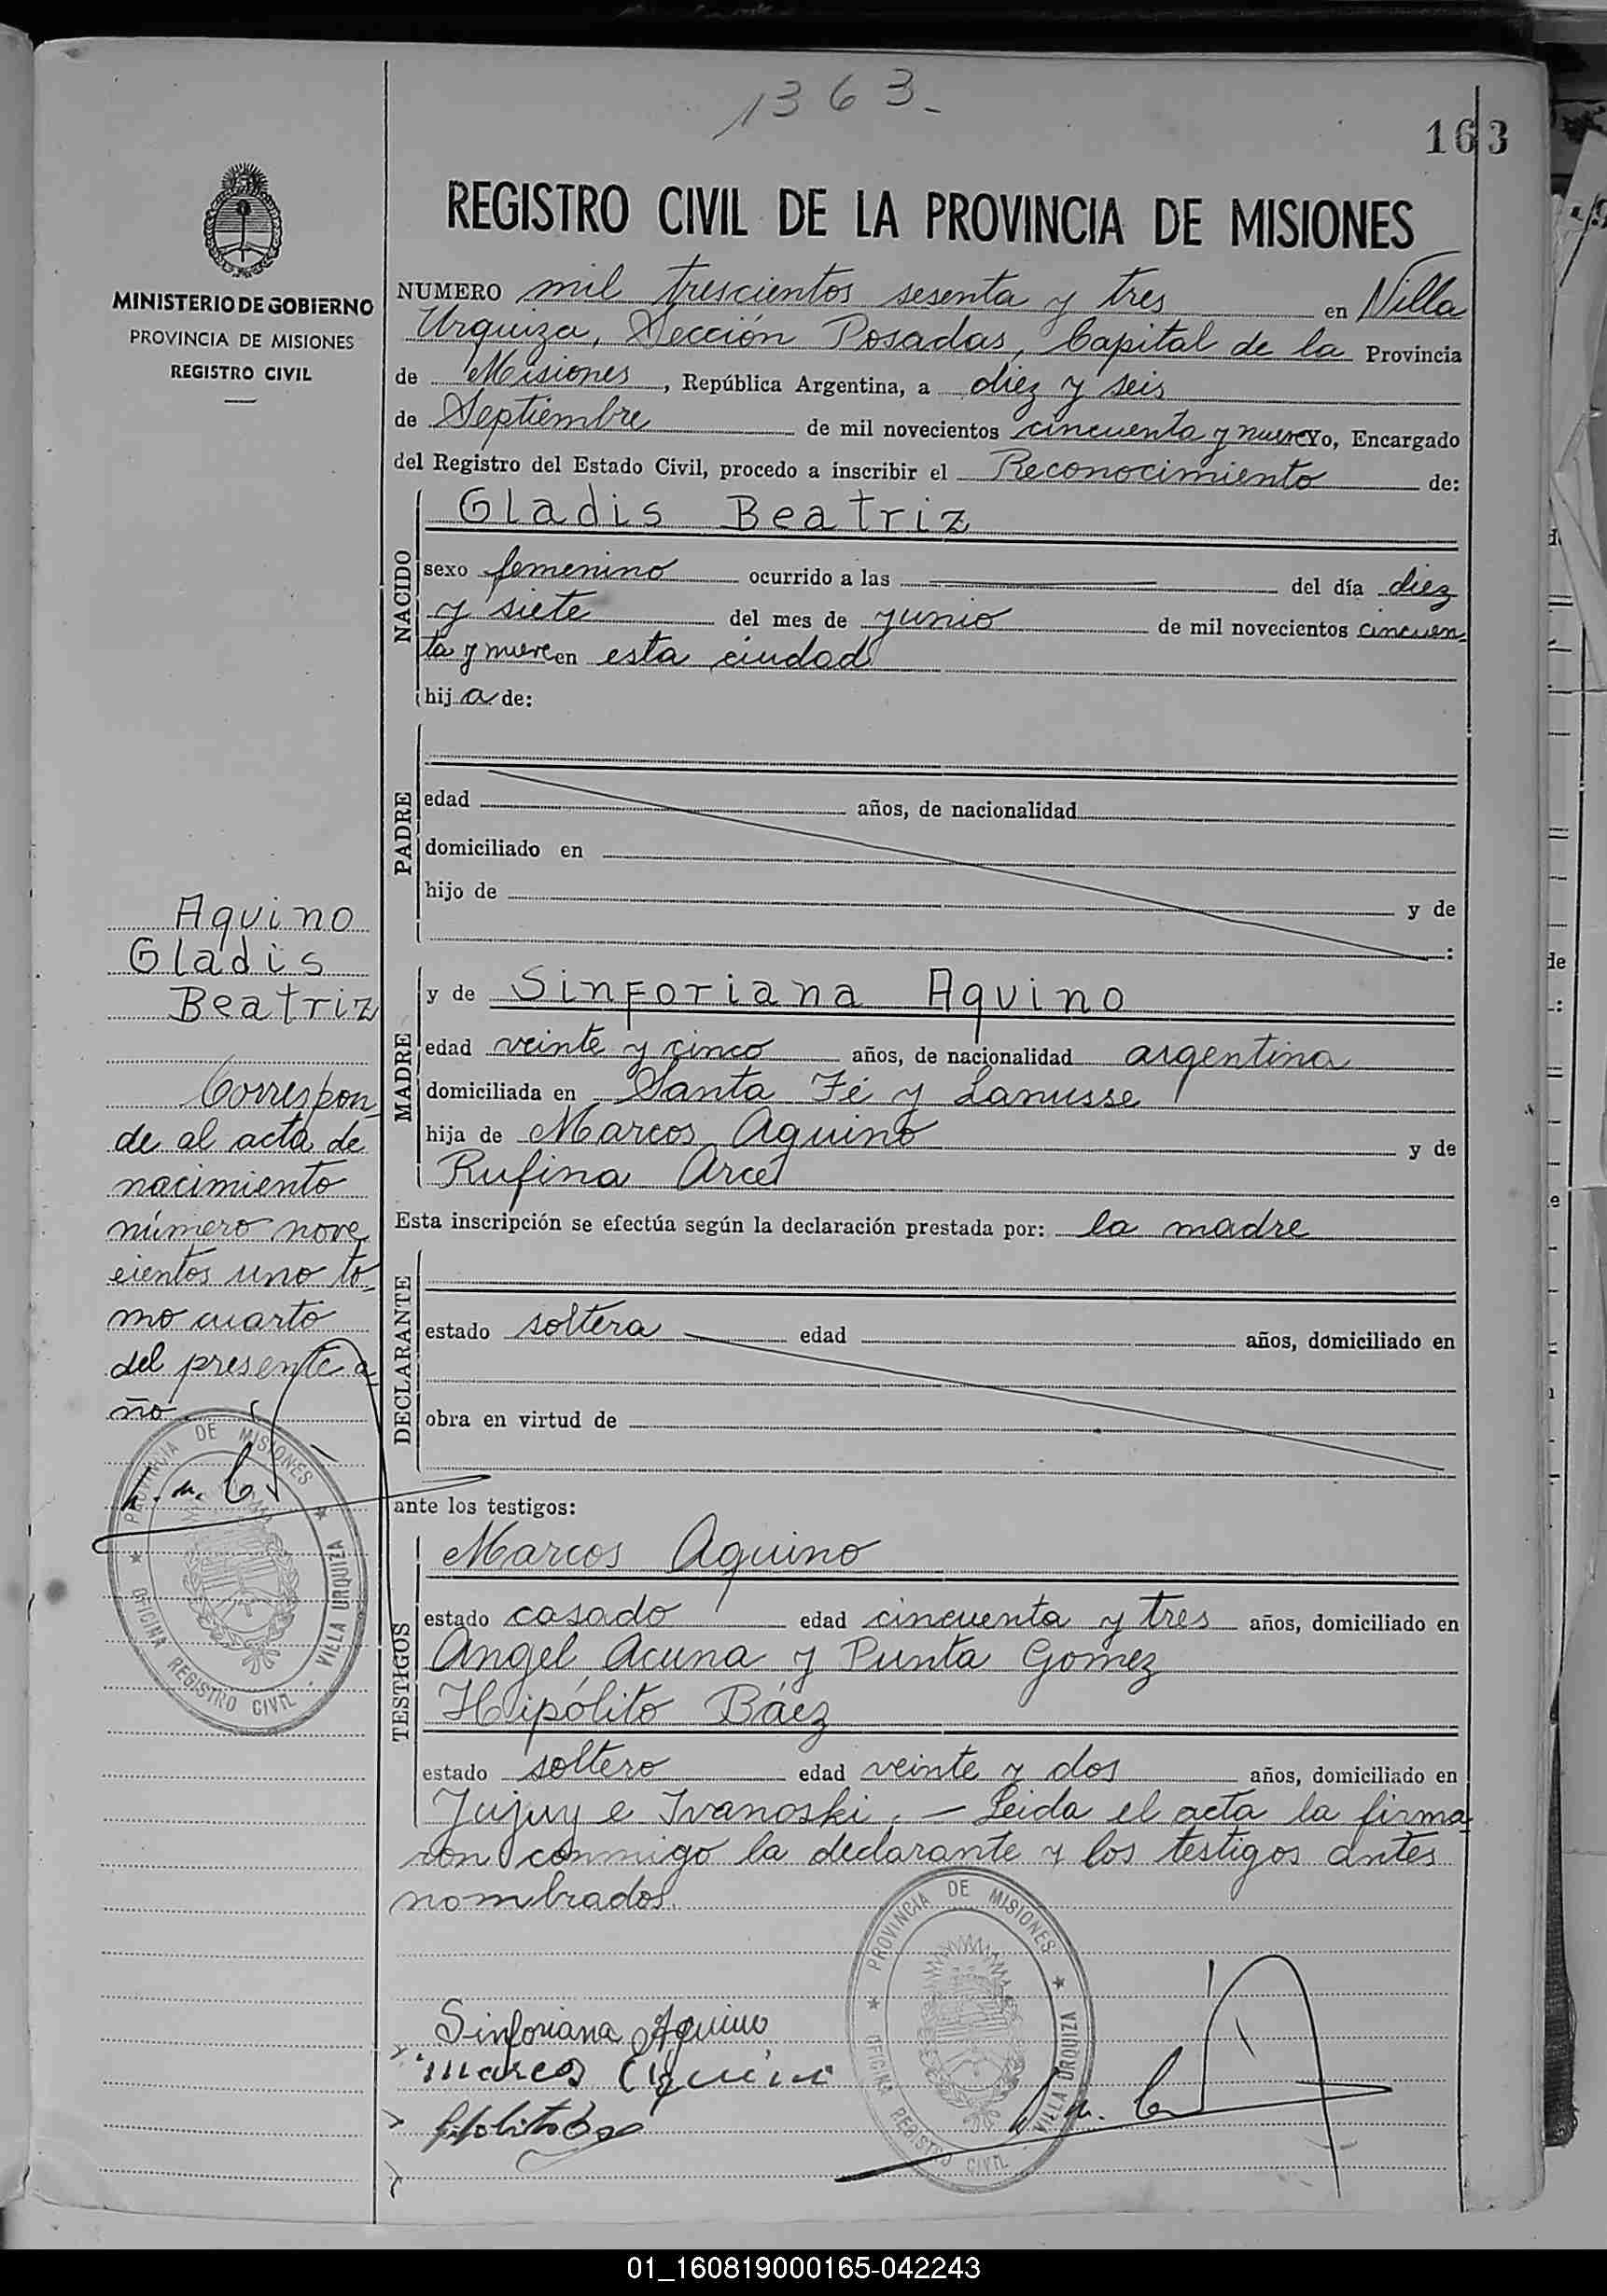 1363-
163
REGISTRO CIVIL DE LA PROVINCIA DE MISIONES
MINISTERIO DE GOBIERNO
PROVINCIA DE MISIONES
REGISTRO CIVIL
NUMERO mil trescientos sesenta y tres en Villa
Urquiza, Sección Posadas, Capital de la Provincia
de Misiones, República Argentina, a diez y seis
de Septiembre de mil novecientos cincuenta y nueve Yo, Encargado
del Registro del Estado Civil, procedo a inscribir el Reconocimiento de:
NACIDO
Gladis Beatriz
sexo femenino ocurrido a las del día diez
y siete del mes de junio de mil novecientos cincuen-
ta y nueve en esta ciudad
hija de:
PADRE
edad años, de nacionalidad
domiciliado en
hijo de y de
:
Aquino
Gladis
Beatriz
Correspon-
de al acta de
nacimiento
número nove
cientos uno to-
mo cuarto
del presente a-
ño.
MADRE
y de Sinforiana Aquino
edad veinte y cinco años, de nacionalidad argentina
domiciliada en Santa Fé y Lanusse
hija de Marcos Aquino y de
Rufina Arce
Esta inscripción se efectúa según la declaración prestada por: la madre
DECLARANTE
estado soltera edad años, domiciliado en
obra en virtud de
PROVINCIA DE MISIONES
OFICINA REGISTRO CIVIL - VILLA URQUIZA
ante los testigos:
TESTIGOS
Marcos Aquino
estado casado edad cincuenta y tres años, domiciliado en
Angel Acuna y Punta Gomez
Hipólito Báez
estado soltero edad veinte y dos años, domiciliado en
Jujuy e Ivanoski. - Leida el acta la firma-
ron conmigo la declarante y los testigos antes
nombrados.
PROVINCIA DE MISIONES
OFICINA REGISTRO CIVIL - VILLA URQUIZA
Sinforiana Aquino
Marcos Aquino
01_160819000165-042243